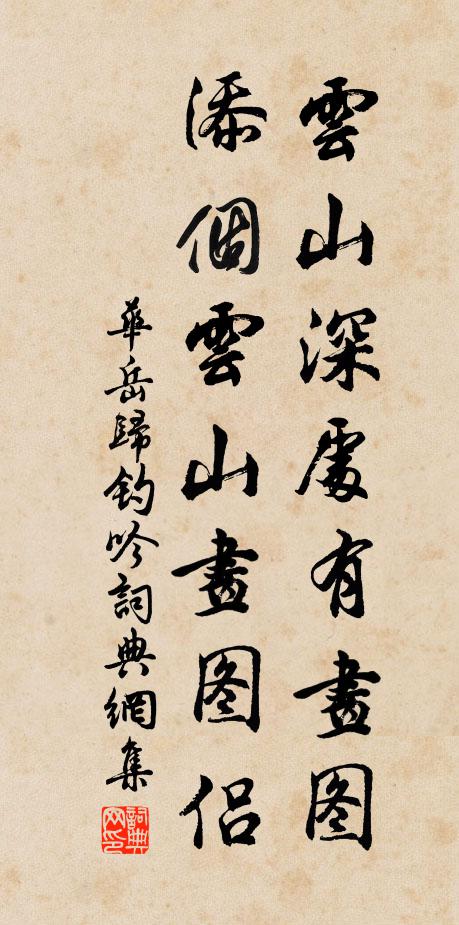 雲山深處有畫图
添個雲山畫图侣
華岳歸釣吟詞典網集
詞典网印